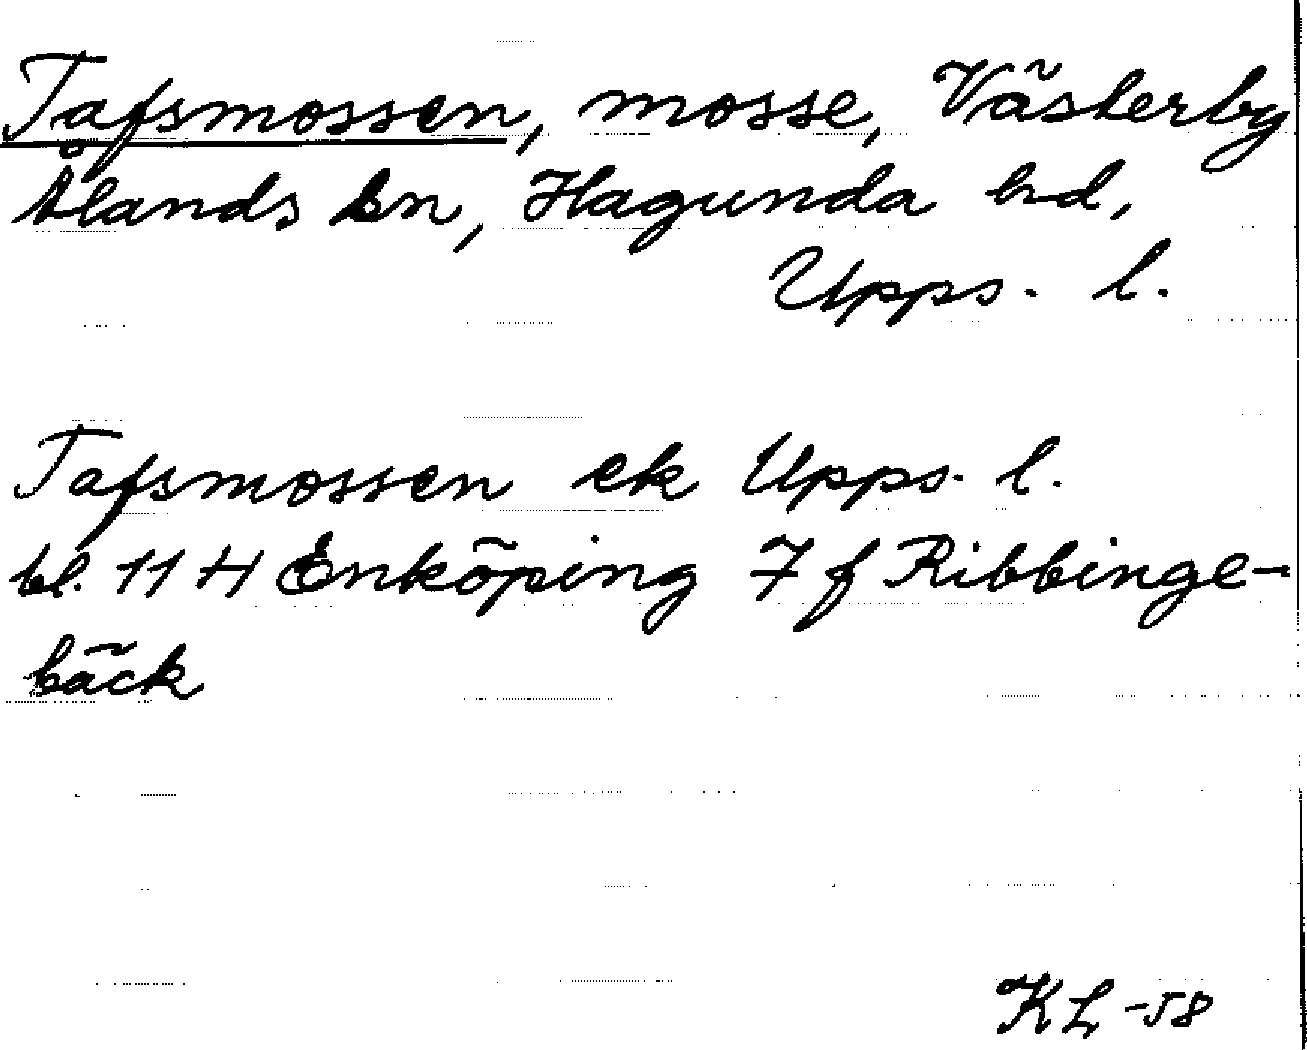 Tafsmossen, mosse, Västerby
Ålands sn, Hagunda hd,
Upps. l.
Tafsmossen ek Upps. l.
bl. 11 H Enköping 7 f Ribbinge-
bäck
KL -58